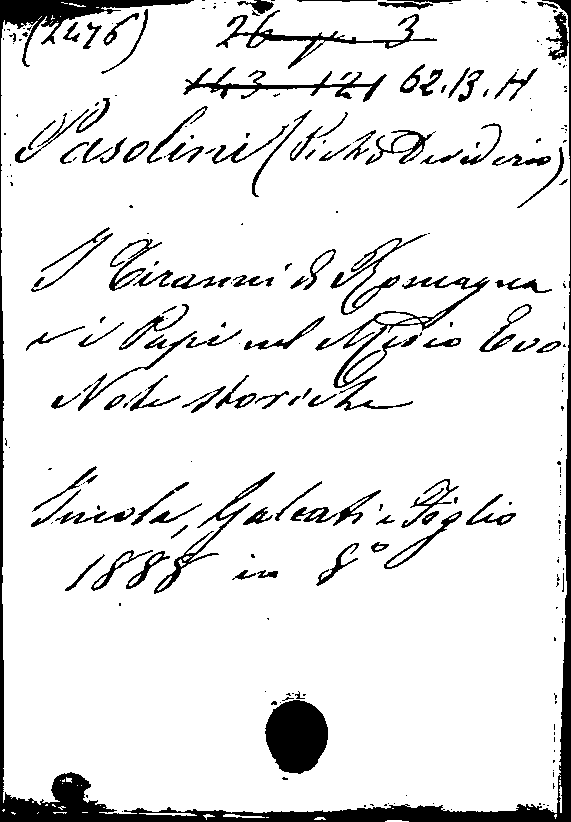 (2476) 26 3
143. 121 62.B.H
Pasolini (Pietro Desiderio),
I Tiranni di Romagna
e i Papi nel Medio Evo
Note storiche
Imola, Galeati e Figlio
1888 in 8°